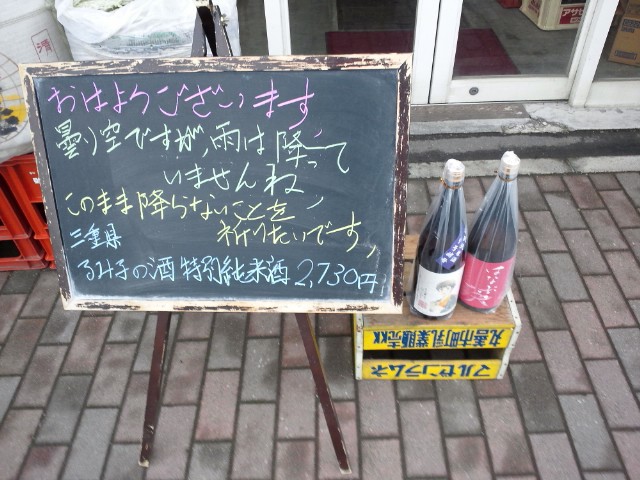 おはようございます
曇り空ですが、雨は降って
いませんね
このまま降らないことを
祈りたいです。
三重県
るみ子の酒 特別純米酒 2,730円
はなぶさ
丸善市町乳業販売KK
マルゼンラムネ
アサヒ